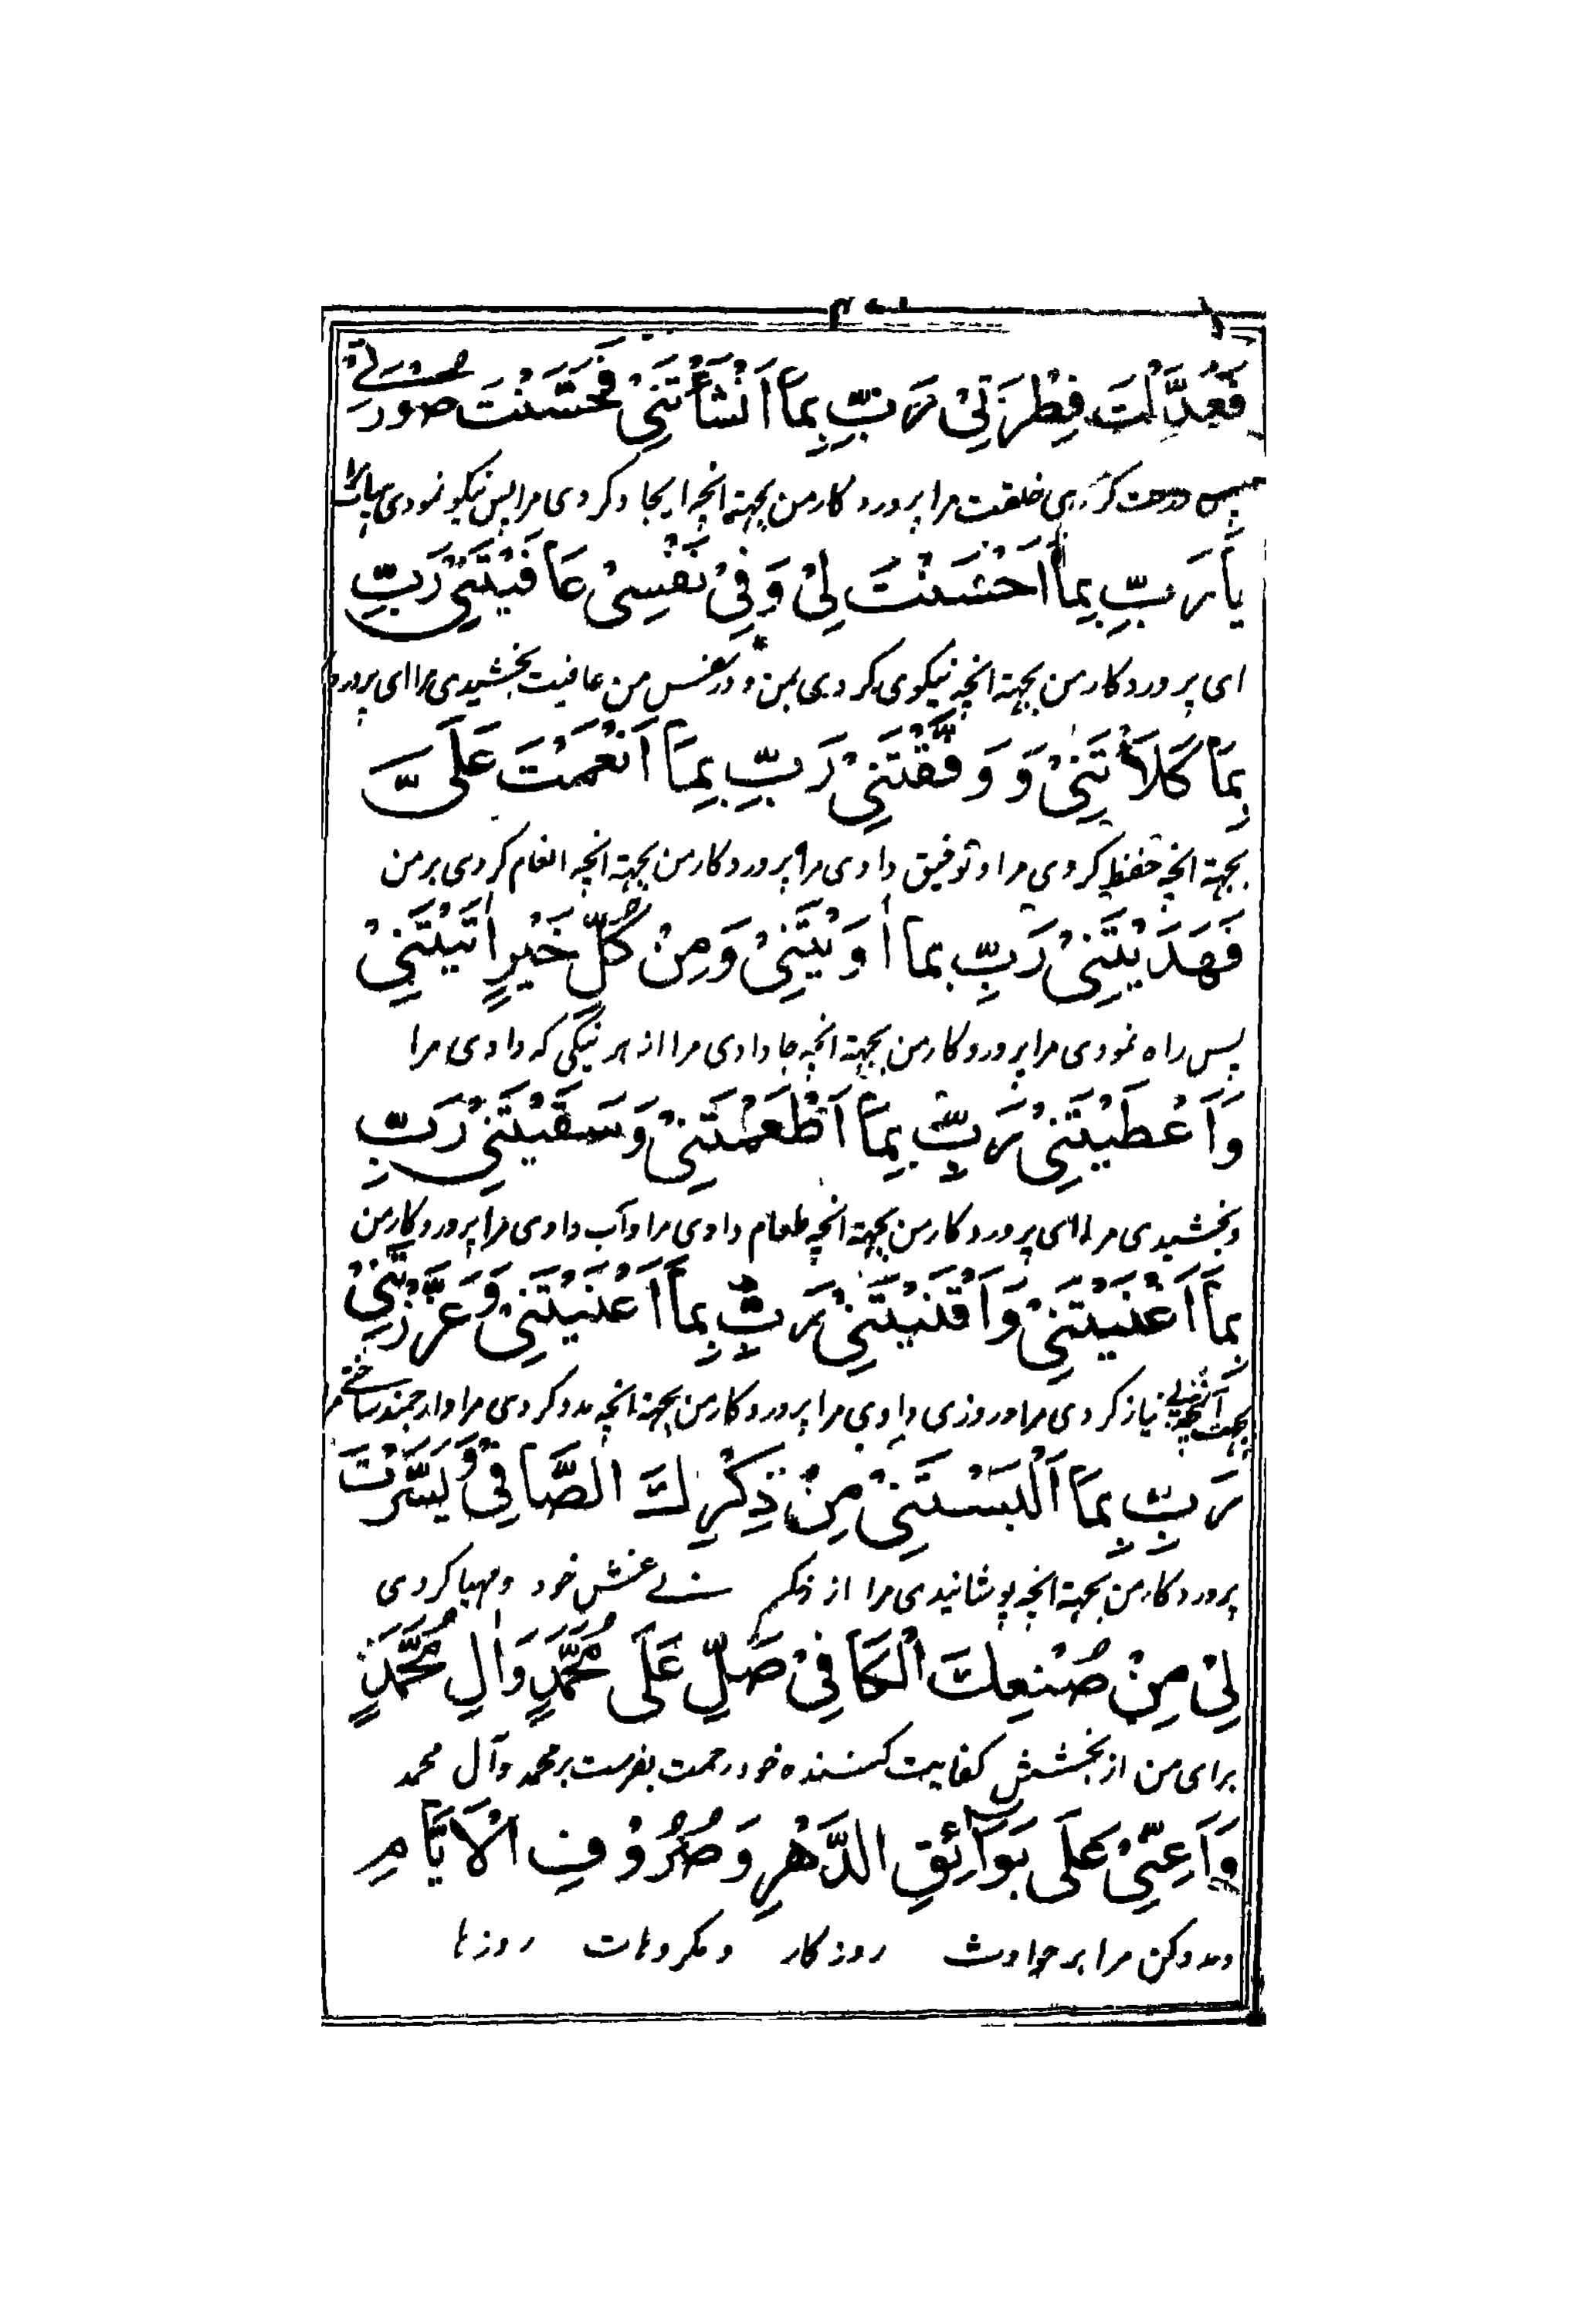 فَعَدَّلْتَ فِطْرَتِيْ رَبِّ بِمَا اَنْشَأْتَنِيْ فَحَسَّنْتَ صُوْرَتِيْ
پس درست کردی خلقت مرا پروردکار من بجهة انچه ایجاد کردی مرا پس نیکو نمودی
يَا رَبِّ بِمَا اَحْسَنْتَ لِيْ وَفِيْ نَفْسِيْ عَافَيْتَنِيْ رَبِّ
ای پروردکار من بجهة انچه نیکوی کردی بمن و در نفس من عافیت بخشیدی مرا ای پرورد
بِمَا كَلَأْتَنِيْ وَ وَفَّقْتَنِيْ رَبِّ بِمَا اَنْعَمْتَ عَلَىَّ
بجهة انچه حفظ کردی مرا و توفیق دادی مرا پروردکار من بجهة انچه انعام کردی بر من
فَهَدَيْتَنِيْ رَبِّ بِمَا اٰوَيْتَنِيْ وَمِنْ كُلِّ خَيْرٍ اٰتَيْتَنِيْ
پس راه نمودی مرا پروردکار من بجهة انچه جا دادی مرا از هر نیکی که دادی مرا
وَاَعْطَيْتَنِيْ رَبِّ بِمَا اَطْعَمْتَنِيْ وَسَقَيْتَنِيْ رَبِّ
و بخشیدی مرا ای پروردکار من بجهة انچه طعام دادی مرا و آب دادی مرا پروردکار من
بِمَا اَغْنَيْتَنِيْ وَاَقْنَيْتَنِيْ رَبِّ بِمَا اَعْنَيْتَنِيْ وَعَزَّزْتَنِيْ
بجهت آنچه بی نیاز کردی مرا و روزی دادی مرا پروردکار من بجهة انچه مدد کردی مرا و ارجمند ساختی مرا
رَبِّ بِمَا اَلْبَسْتَنِيْ مِنْ ذِكْرِكَ الصَّافِيْ وَيَسَّرْتَ
پروردکار من بجهة انچه پوشانیدی مرا از خود و مهیا کردی
لِيْ مِنْ صُنْعِكَ الْكَافِيْ صَلِّ عَلَى مُحَمَّدٍ وَاٰلِ مُحَمَّدٍ
برای من از بخشش کفایت کننده خود رحمت بفرست بر محمد و آل محمد
وَاَعِنِّيْ عَلَى بَوَآئِقِ الدَّهْرِ وَصُرُوْفِ الْاَيَّامِ
و مدد کن مرا بر حوادث روزکار و مکروهات روزها